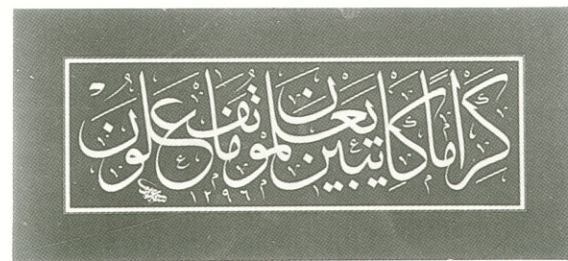 كِرَامًا كَاتِبِينَ يَعْلَمُونَ مَا تَفْعَلُونَ
١٢٩٦